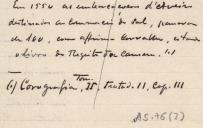 Em 1550 as embarcações d'Aveiro
destinadas ao commercio do sal, passavam
de 160, como affirma Carvalho, citando
o livro do Registo da Camara. (1)
(1) Corografia, Tom. II, Tratad. II, Cap. III
AS-76(2)